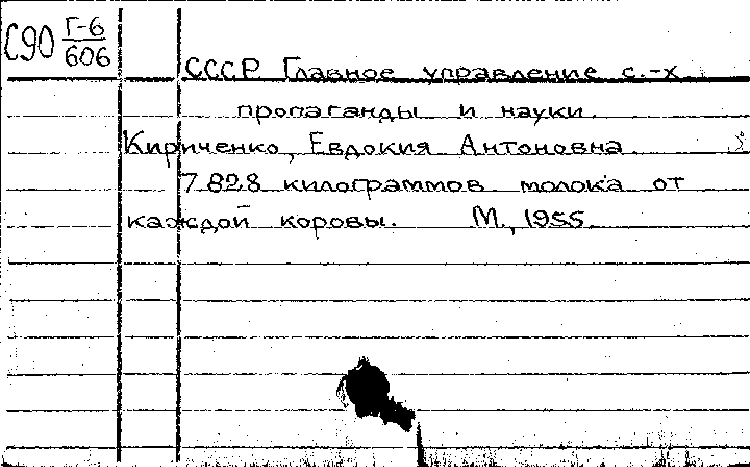 С90 Г-6/606
СССР Главное управление с.-х.
пропаганды и науки.
Кириченко, Евдокия Антоновна.
7.828 килограммов молока от
каждой коровы. М., 1955